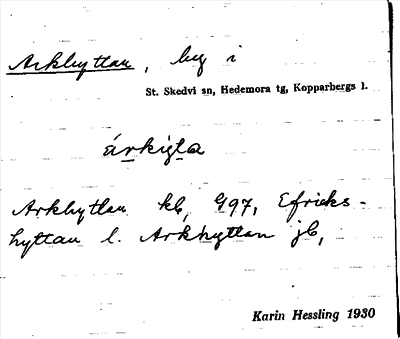 Arkhyttan, by i
St. Skedvi sn, Hedemora tg, Kopparbergs l.
árkigta
Arkhyttan kb, G97, Efriks-
hyttan l. Arkhyttan jb,
Karin Hessling 1930